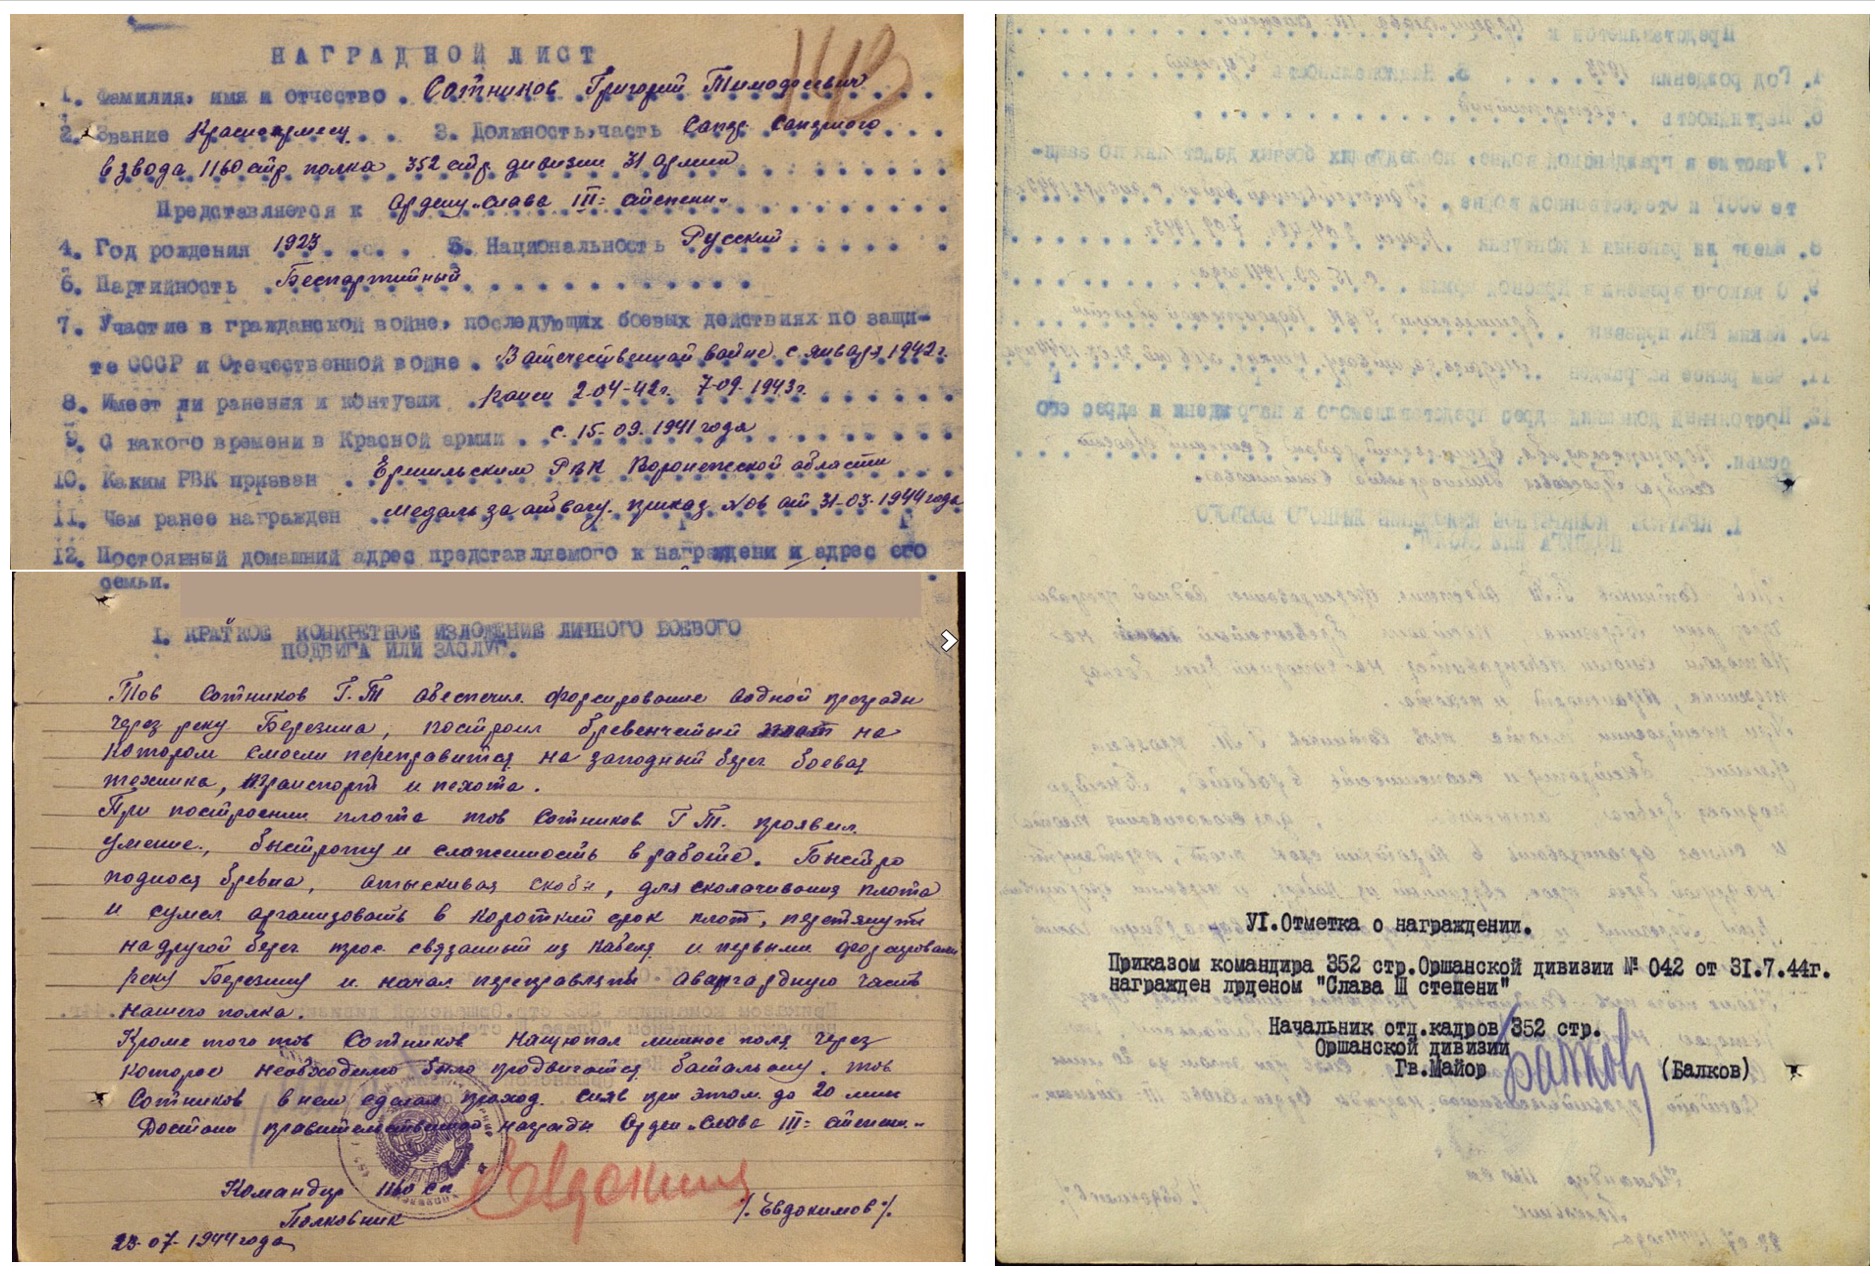 143
НАГРАДНОЙ ЛИСТ
1. Фамилия, имя и отчество . Сотников Григорий Тимофеевич
2. Звание Красноармеец . . 3. Должность, часть Сапер Саперного
взвода 1160 стр полка 352 стр дивизии 31 армии
Представляется к Ордену "Слава III = степени"
4. Год рождения 1923 . . . 5. Национальность Русский
6. Партийность Беспартийный
7. Участие в гражданской войне, последующих боевых действиях по защи-
те СССР и Отечественной войне . В отечественной войне с января 1942г.
8. Имеет ли ранения и контузии . ранен 2.04-42г. 7-09.1943г.
9. С какого времени в Красной армии . . с. 15-09.1941 года
10. Каким РВК призван . РВК Воронежской области
11. Чем ранее награжден . Медаль за отвагу. приказ N06 от 31-03-1944 года
12. Постоянный домашний адрес представляемого к награждени и адрес его
семьи.
I. КРАТКОЕ КОНКРЕТНОЕ ИЗЛОЖЕНИЕ ЛИЧНОГО БОЕВОГО
ПОДВИГА ИЛИ ЗАСЛУГ.
Тов Сотников Г.Т обеспечил форсирование водной преграды
через реку Березина, построил бревенчатый плот на
котором смогли переправится на западный берег боевая
техника, транспорт и пехота.
При построении плота тов Сотников Г Т. проявил
умение, быстроту и слаженность в работе. Быстро
поднося бревна, отыскивая скобы, для сколачивания плота
и сумел организовать в короткий срок плот, перетянути
на другой берег трос связанный из кабеля и первыми форсировали
реку Березину и начал переправлять авангардную часть
нашего полка.
Кроме того тов Сотников нащупал минное поля через
которое необходимо было продвигатся батальону. тов
Сотников в нем сделал проход. сняв при этом до 20 мин
Достоин правительственной награды Орден "Слава III = степени"
Командир 1160 сп
Полковник /. Евдокимов /.
23-07-1944 года
УI. Отметка о награждении.
Приказом командира 352 стр.Оршанской дивизии № 042 от 31.7.44г.
награжден лрденом "Слава Ш степени"
Начальник отд.кадров 352 стр.
Оршанской дивизии
Гв.Майор (Балков)